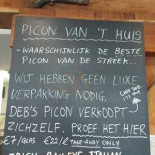 PICON VAN 'T HUIS
- WAARSCHIJNLIJK DE BESTE
PICON VAN DE STREEK...
WIJ HEBBEN GEEN LUXE
VERPAKKING NODIG.
DEB'S PICON VERKOOPT
ZICHZELF. PROEF HET HIER
E7/GLAS E22/L TAKE-AWAY ONLY